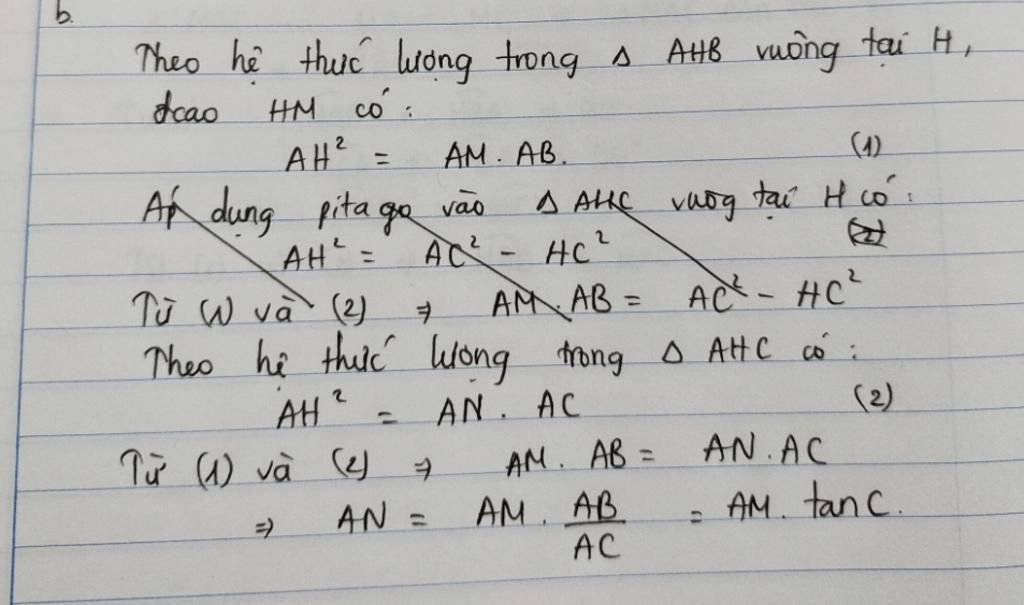 b.
Theo hệ thức lượng trong Δ AHB vuông tại H,
đcao HM có :
AH² = AM. AB. (1)
Áp dụng pitago vào Δ AHC vuog tại H có :
AH² = AC² - HC² (2)
Từ (1) và (2) ⇒ AM. AB = AC² - HC²
Theo hệ thức lượng trong Δ AHC có :
AH² = AN. AC (2)
Từ (1) và (2) ⇒ AM. AB = AN.AC
⇒ AN = AM. AB/AC = AM. tanC.